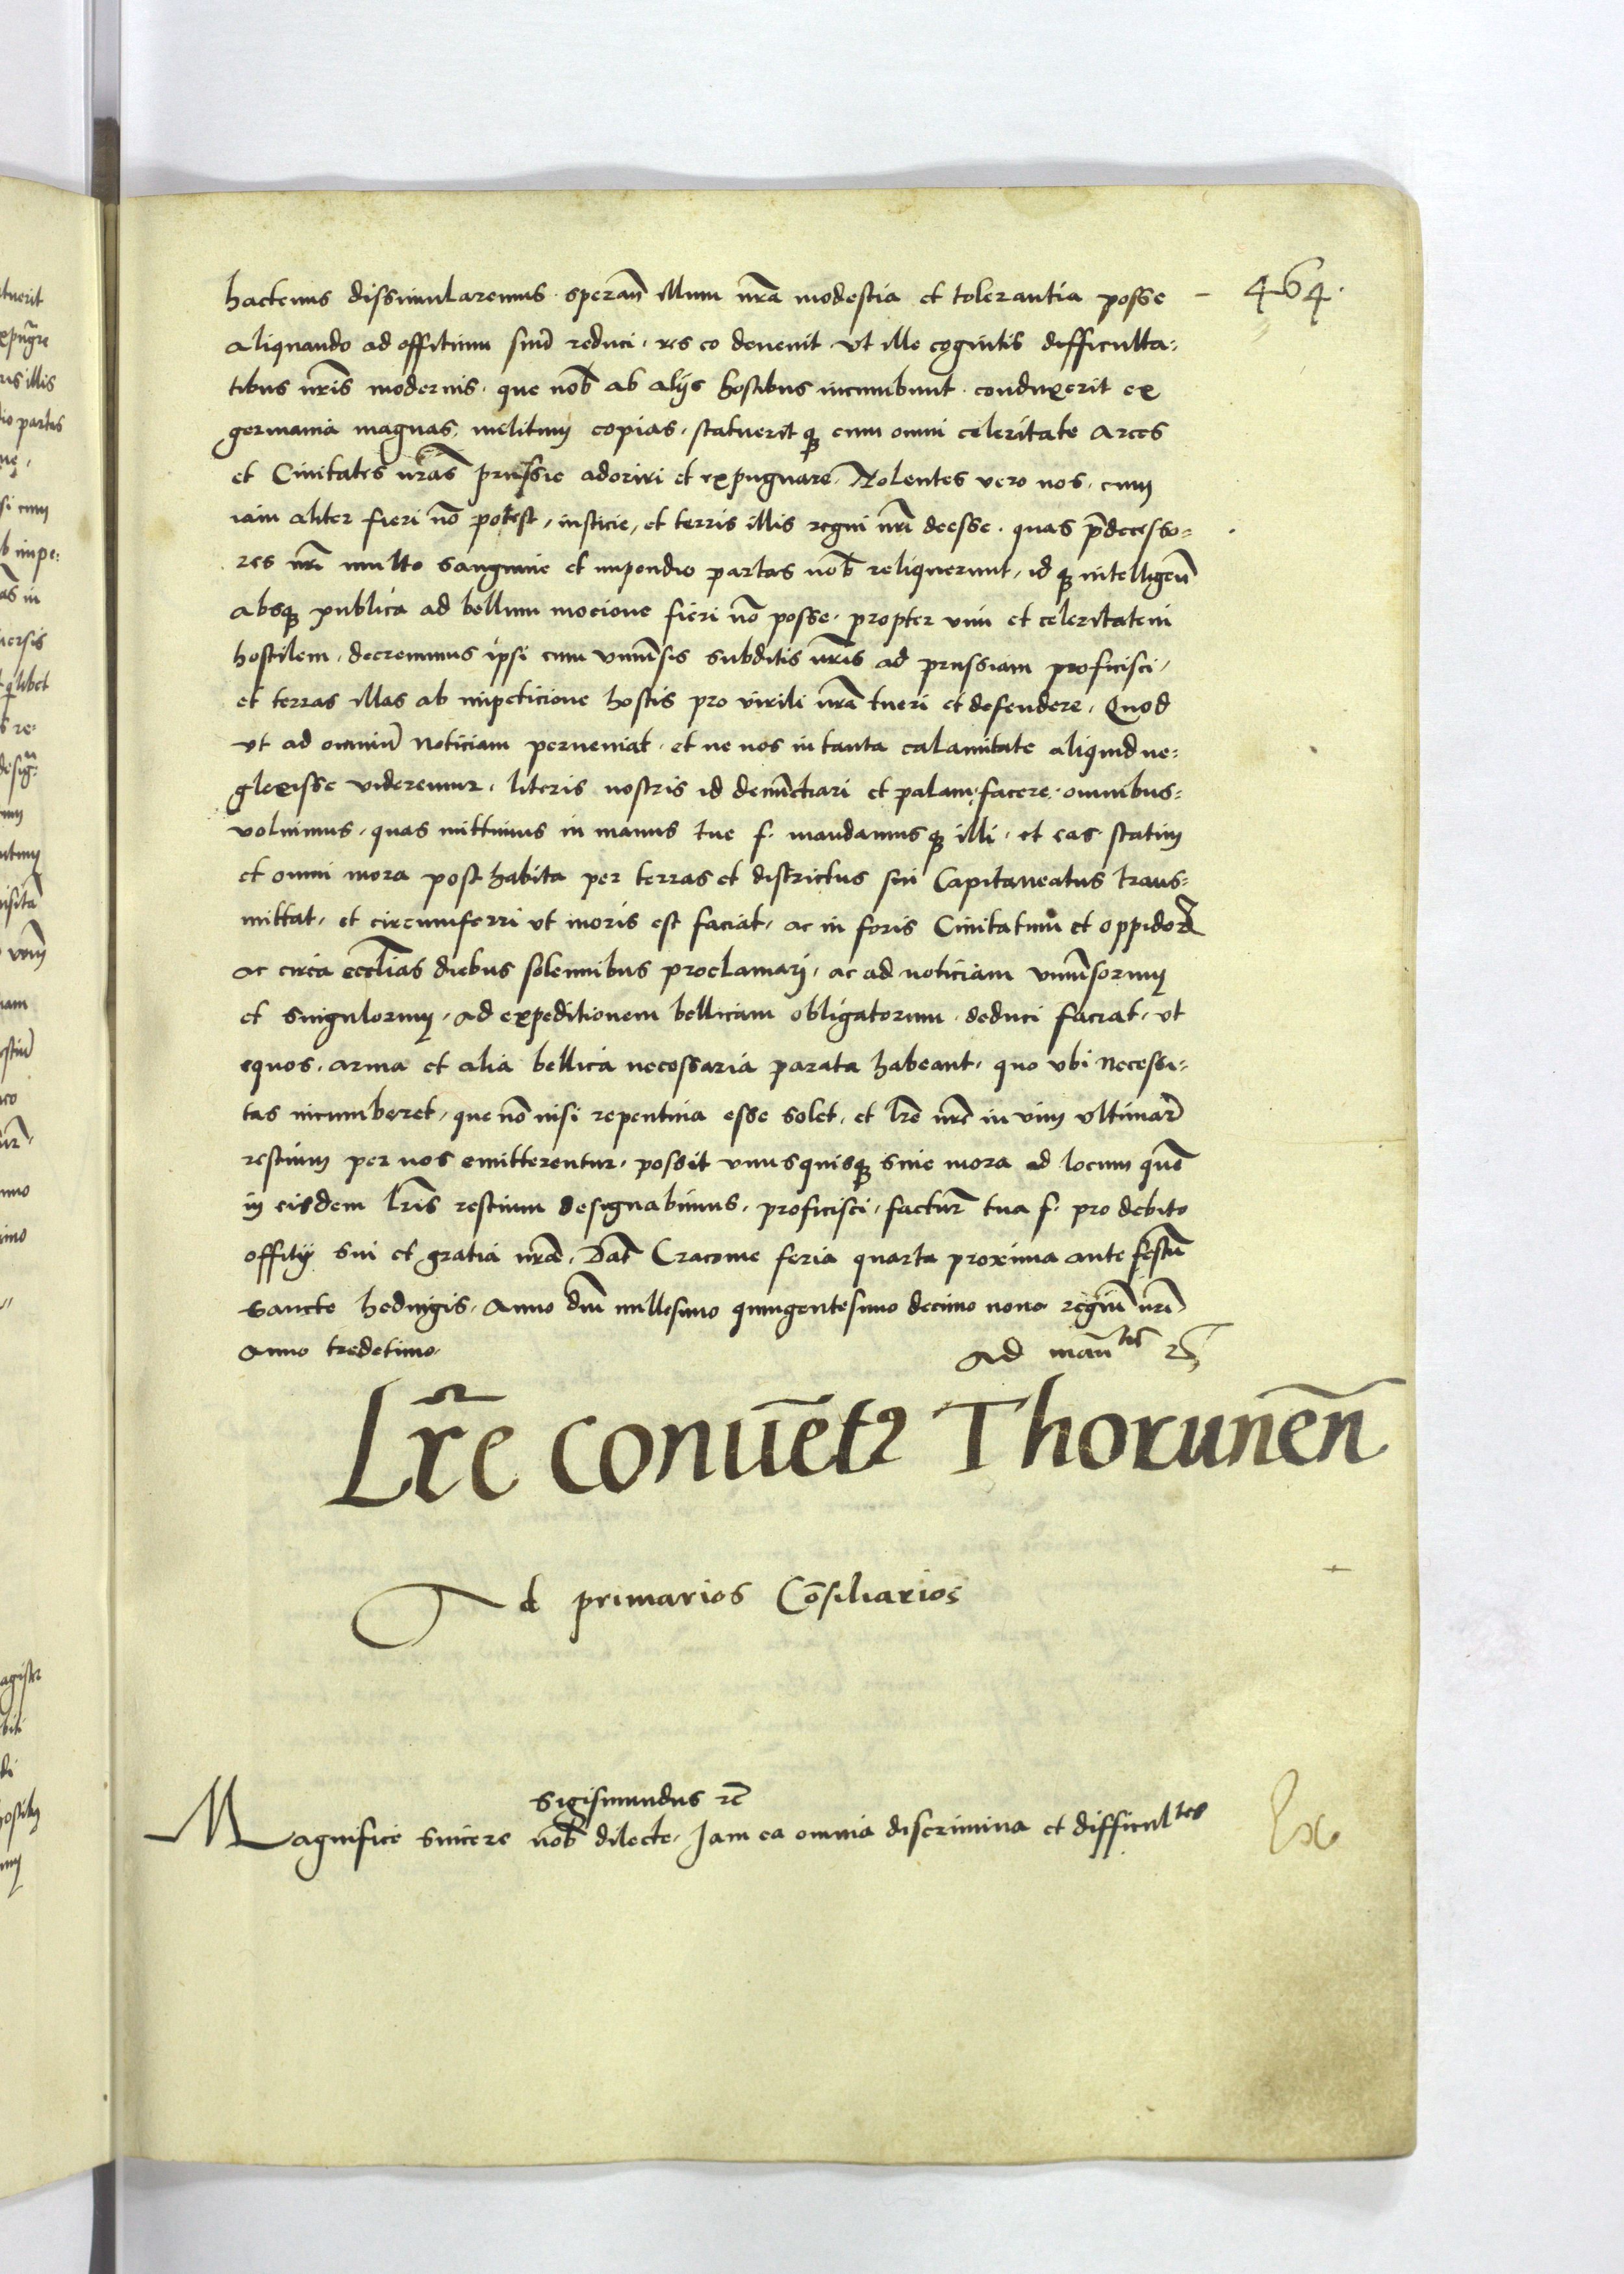 464.
hactenus dissimularemus. sperañ illum nrã modestia et tolerantia posse
aliquando ad offitium suũ reduci, res eo devenit, ut ille cognitis difficulta=
tibus nrĩs modernis, que nob̃ ab alijs hostibus incumbunt. conduxerit ex
germania magnas melitum copias, statuerit q; cum omni celeritate arces
et Civitates nrãs prussie adoriri et expugnare. Nolentes vero nos, cum
iam aliter fieri nõ potest, insticie, et terris illis regni nrĩ deesse. quas p̃decesso=
res nrĩ multo sanguine et impendio partas nob̃ reliquerunt, id q; intelligeñ
absq; publica ad bellum mocione fieri nõ posse, propter vim et celeritatem
hostilem, decrevimus ipsi cum vnivẽsis subditis nrĩs ad prussiam proficisci,
et terras illas ab impeticione hostis pro virili nrã tueri et defendere, Quod
vt ad omniũ noticiam perveniat, et ne nos in tanta calamitate aliquid ne=
glexisse videremur, literis nostris id denũctiari et palam facere omnibus=
voluimus, quas mittimus in manus tue f. mandamus q; illi, et eas statim
et omni mora post habita per terras et districtus sui Capitaneatus trans=
mittat, et circumferri ut moris est faciat, ac in foris Civitatum et oppidoꝝ
ac circa eccl̃ias diebus solennibus proclamarj, ac ad noticiam vnivẽsorum
et singulorum, ad expeditionem bellicam obligatorum, deduci faciat, ut
equos, arma et alia bellica necessaria parata habeant, quo vbi necessi=
tas incumberet, que nõ nisi repentina esse solet, et lrẽ nrẽ in vim ultimarũ
restium per nos emitterentur, possit vnusquisq; sine mora ad locum quẽ
in eisdem lrĩs restium designabimus, proficisci, facturã tua f. pro debito
offitij sui et gratia nrã. Dat̃ Cracovie feria quarta proxima ante festũ
sancte hedvigis, Anno dnĩ millesimo quingentesimo decimo nono regni nrĩ
anno tredetimo.
Ad mañtũ rͣ
Lrẽ conuẽtꝰ Thoruneñ
Ad primarios Cõsiliarios
Sigismundus rc̃
Magnifice sincere nob̃ dilecte. Jam ea omnia discrimina et difficultes
Ex